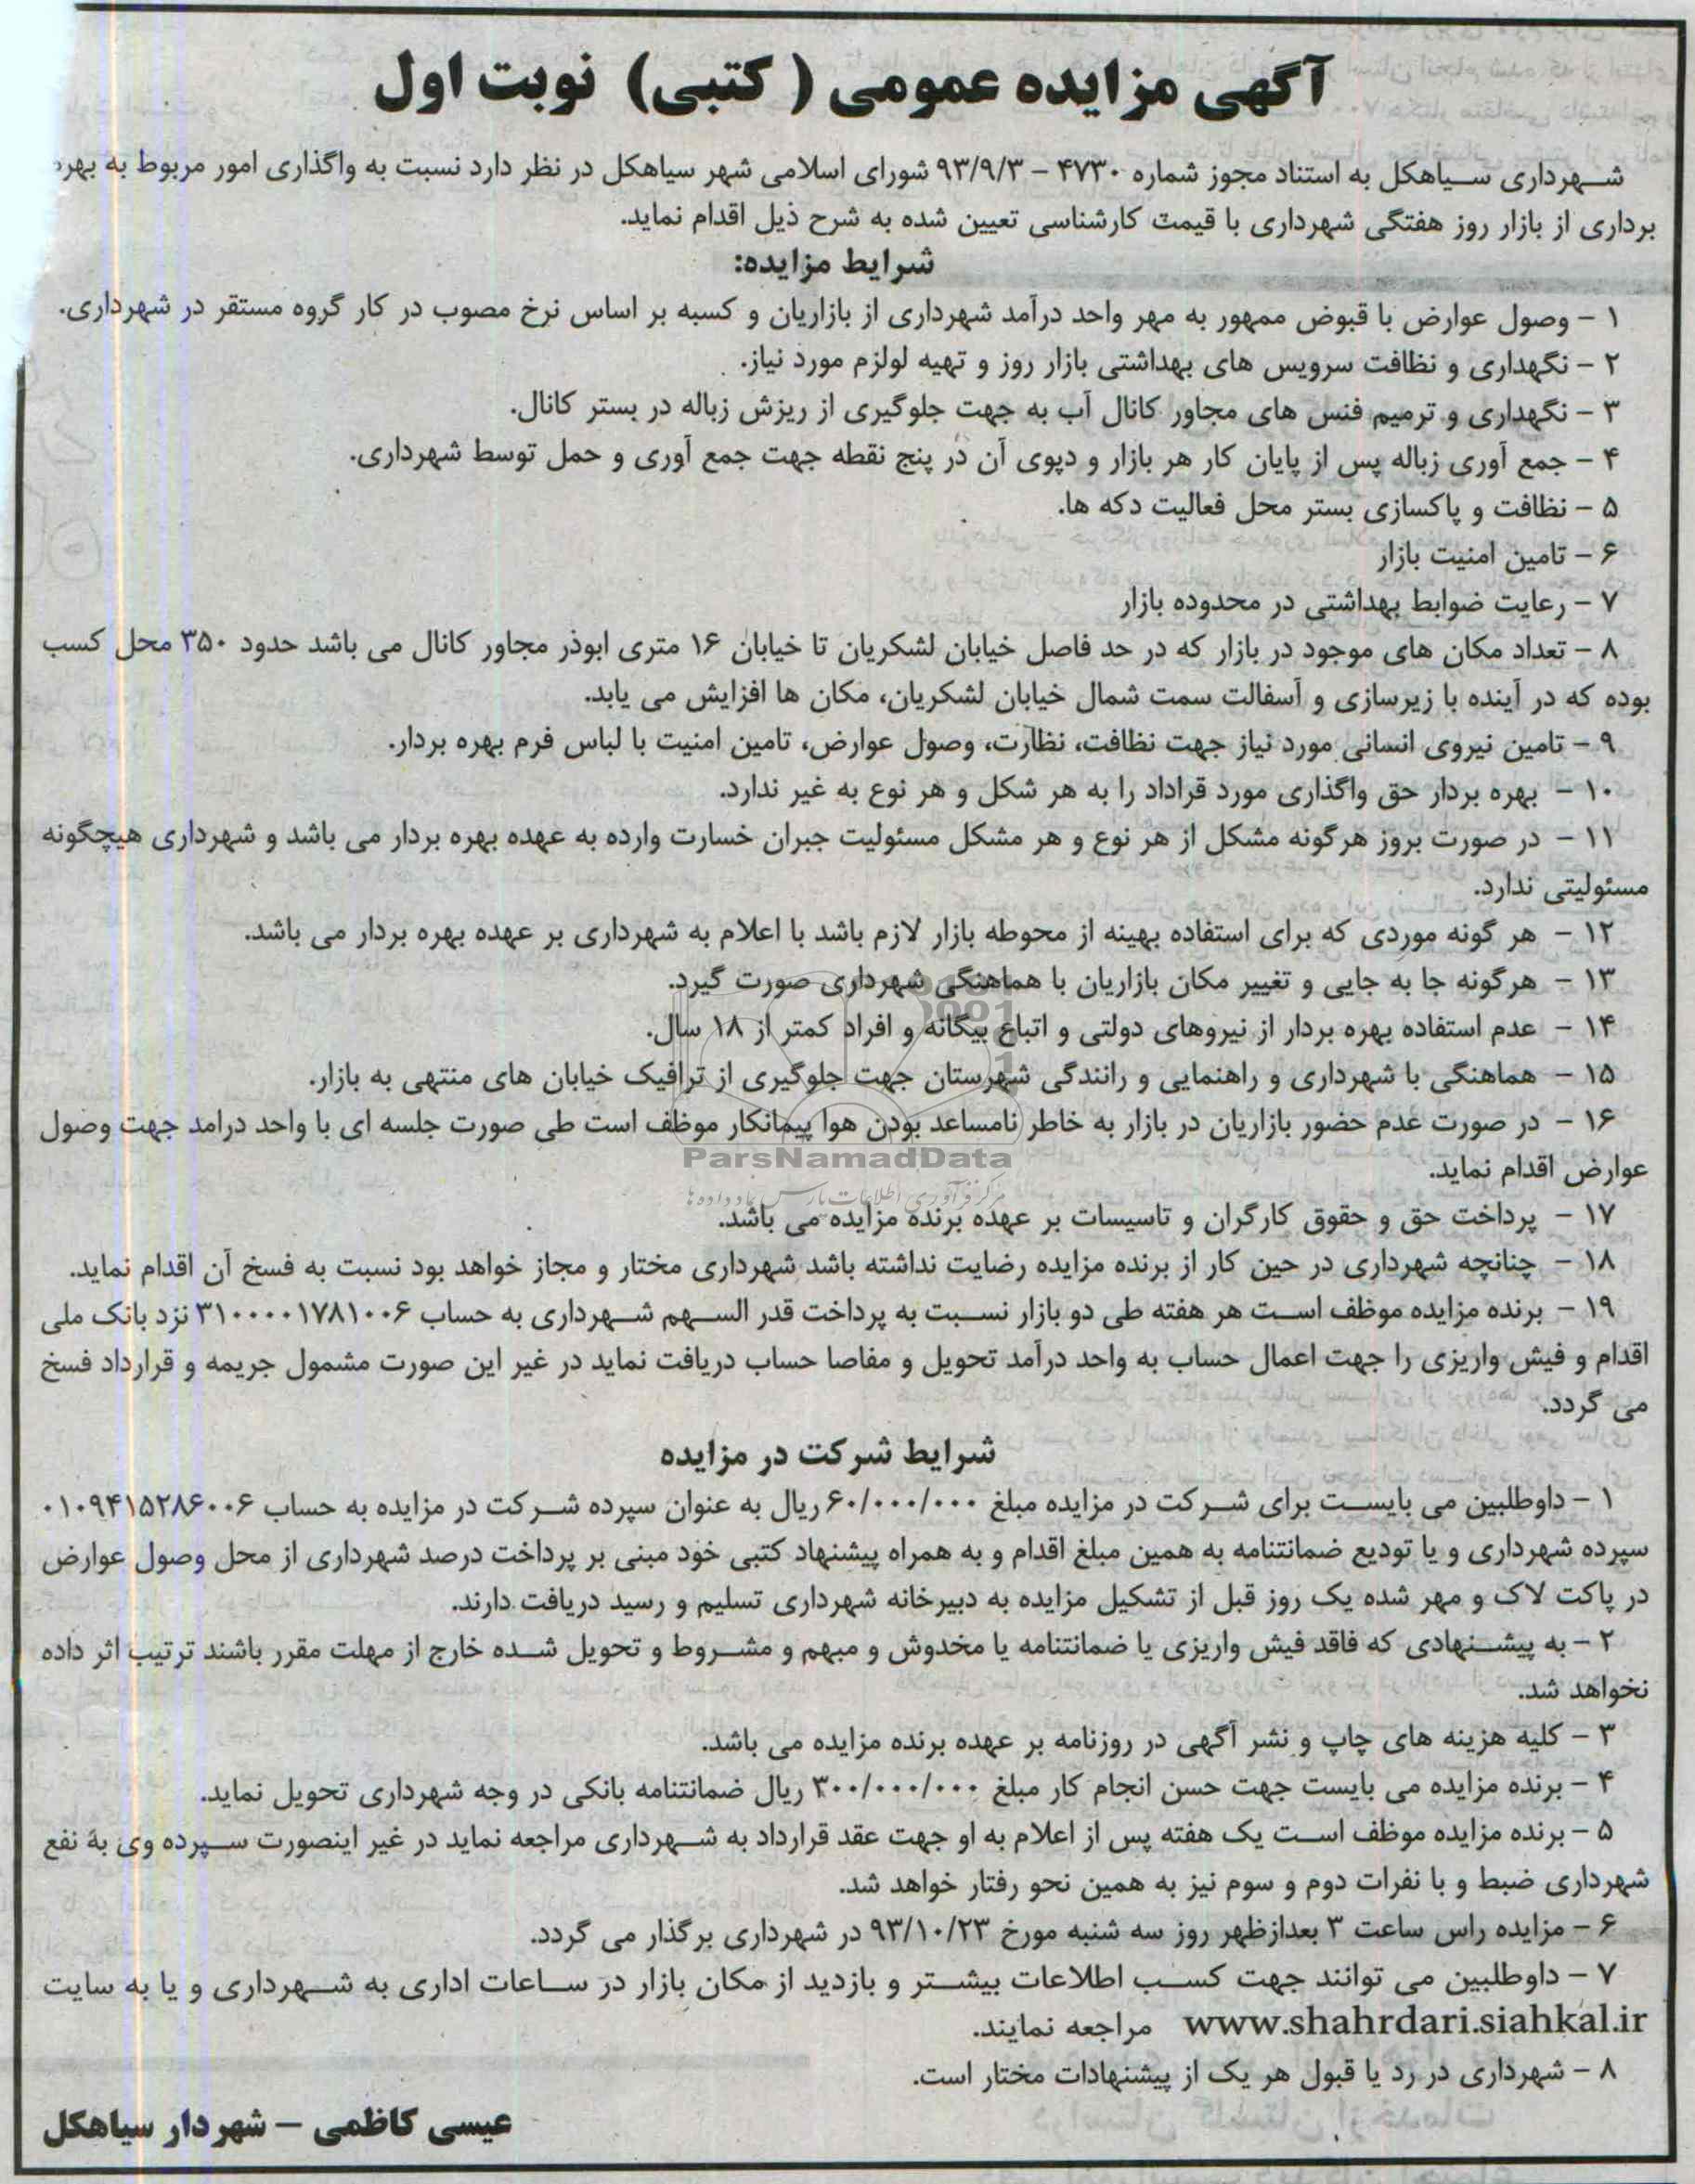 آگهی مزایده عمومی ( کتبی) نوبت اول
شهرداری سیاهکل به استناد مجوز شماره ۴۷۳۰ – ۹۳/۹/۳ شورای اسلامی شهر سیاهکل در نظر دارد نسبت به واگذاری امور مربوط به بهره
برداری از بازار روز هفتگی شهرداری با قیمت کارشناسی تعیین شده به شرح ذیل اقدام نماید.
شرایط مزایده:
۱ – وصول عوارض با قبوض ممهور به مهر واحد درآمد شهرداری از بازاریان و کسبه بر اساس نرخ مصوب در کار گروه مستقر در شهرداری.
۲ – نگهداری و نظافت سرویس های بهداشتی بازار روز و تهیه لولزم مورد نیاز.
۳ – نگهداری و ترمیم فنس های مجاور کانال آب به جهت جلوگیری از ریزش زباله در بستر کانال.
۴ – جمع آوری زباله پس از پایان کار هر بازار و دپوی آن در پنج نقطه جهت جمع آوری و حمل توسط شهرداری.
۵ – نظافت و پاکسازی بستر محل فعالیت دکه ها.
۶ – تامین امنیت بازار
۷ – رعایت ضوابط بهداشتی در محدوده بازار
۸ – تعداد مکان های موجود در بازار که در حد فاصل خیابان لشکریان تا خیابان ۱۶ متری ابوذر مجاور کانال می باشد حدود ۳۵۰ محل کسب
بوده که در آینده با زیرسازی و آسفالت سمت شمال خیابان لشکریان، مکان ها افزایش می یابد.
۹ – تامین نیروی انسانی مورد نیاز جهت نظافت، نظارت، وصول عوارض، تامین امنیت با لباس فرم بهره بردار.
۱۰ – بهره بردار حق واگذاری مورد قراداد را به هر شکل و هر نوع به غیر ندارد.
۱۱ – در صورت بروز هرگونه مشکل از هر نوع و هر مشکل مسئولیت جبران خسارت وارده به عهده بهره بردار می باشد و شهرداری هیچگونه
مسئولیتی ندارد.
۱۲ – هر گونه موردی که برای استفاده بهینه از محوطه بازار لازم باشد با اعلام به شهرداری بر عهده بهره بردار می باشد.
۱۳ – هرگونه جا به جایی و تغییر مکان بازاریان با هماهنگی شهرداری صورت گیرد.
۱۴ – عدم استفاده بهره بردار از نیروهای دولتی و اتباع بیگانه و افراد کمتر از ۱۸ سال.
۱۵ – هماهنگی با شهرداری و راهنمایی و رانندگی شهرستان جهت جلوگیری از ترافیک خیابان های منتهی به بازار.
۱۶ – در صورت عدم حضور بازاریان در بازار به خاطر نامساعد بودن هوا پیمانکار موظف است طی صورت جلسه ای با واحد درامد جهت وصول
عوارض اقدام نماید.
ParsNamadData
مرکز فرآوری اطلاعات پارس نماد داده ها
۱۷ – پرداخت حق و حقوق کارگران و تاسیسات بر عهده برنده مزایده می باشد.
۱۸ – چنانچه شهرداری در حین کار از برنده مزایده رضایت نداشته باشد شهرداری مختار و مجاز خواهد بود نسبت به فسخ آن اقدام نماید.
۱۹ – برنده مزایده موظف است هر هفته طی دو بازار نسبت به پرداخت قدر السهم شهرداری به حساب ۳۱۰۰۰۰۱۷۸۱۰۰۶ نزد بانک ملی
اقدام و فیش واریزی را جهت اعمال حساب به واحد درآمد تحویل و مفاصا حساب دریافت نماید در غیر این صورت مشمول جریمه و قرارداد فسخ
می گردد.
شرایط شرکت در مزایده
۱ – داوطلبین می بایست برای شرکت در مزایده مبلغ ۶۰/۰۰۰/۰۰۰ ریال به عنوان سپرده شرکت در مزایده به حساب ۰۱۰۹۴۱۵۲۸۶۰۰۶
سپرده شهرداری و یا تودیع ضمانتنامه به همین مبلغ اقدام و به همراه پیشنهاد کتبی خود مبنی بر پرداخت درصد شهرداری از محل وصول عوارض
در پاکت لاک و مهر شده یک روز قبل از تشکیل مزایده به دبیرخانه شهرداری تسلیم و رسید دریافت دارند.
۲ – به پیشنهادی که فاقد فیش واریزی یا ضمانتنامه یا مخدوش و مبهم و مشروط و تحویل شده خارج از مهلت مقرر باشند ترتیب اثر داده
نخواهد شد.
۳ – کلیه هزینه های چاپ و نشر آگهی در روزنامه بر عهده برنده مزایده می باشد.
۴ – برنده مزایده می بایست جهت حسن انجام کار مبلغ ۳۰۰/۰۰۰/۰۰۰ ریال ضمانتنامه بانکی در وجه شهرداری تحویل نماید.
۵ – برنده مزایده موظف است یک هفته پس از اعلام به او جهت عقد قرارداد به شهرداری مراجعه نماید در غیر اینصورت سپرده وی به نفع
شهرداری ضبط و با نفرات دوم و سوم نیز به همین نحو رفتار خواهد شد.
۶ – مزایده راس ساعت ۳ بعدازظهر روز سه شنبه مورخ ۹۳/۱۰/۲۳ در شهرداری برگذار می گردد.
۷ – داوطلبین می توانند جهت کسب اطلاعات بیشتر و بازدید از مکان بازار در ساعات اداری به شهرداری و یا به سایت
www.shahrdari.siahkal.ir مراجعه نمایند.
۸ – شهرداری در رد یا قبول هر یک از پیشنهادات مختار است.
عیسی کاظمی – شهردار سیاهکل